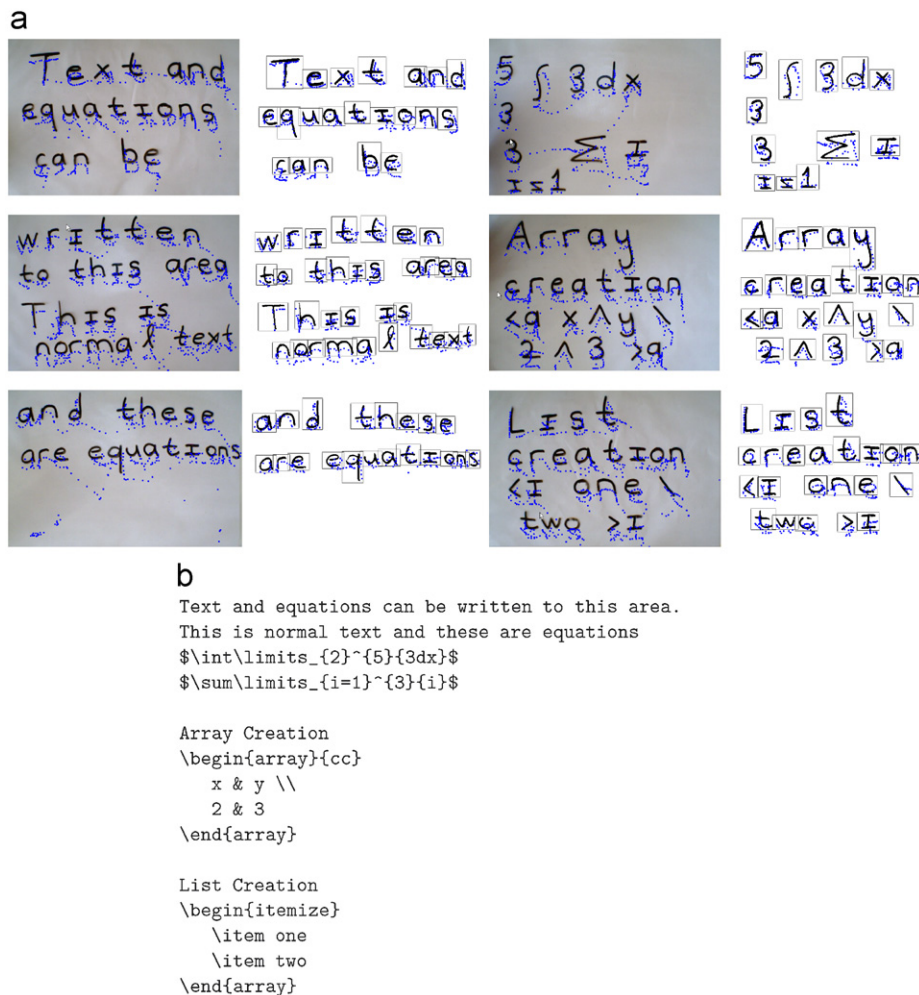 a
Text and
equations
can be
Text and
equations
can be
5
∫ 3dx
3
3 Σ I
I=1
5
∫ 3dx
3
3 Σ I
I=1
written
to this area
This is
normal text
written
to this area
This is
normal text
Array
creation
<a x ^ y \
2 ^ 3 >a
Array
creation
<a x ^ y \
2 ^ 3 >a
and these
are equations
and these
are equations
List
creation
<I one \
two >I
List
creation
<I one \
two >I
b
Text and equations can be written to this area.
This is normal text and these are equations
$\int\limits_{2}^{5}{3dx}$
$\sum\limits_{i=1}^{3}{i}$
Array Creation
\begin{array}{cc}
x & y \\
2 & 3
\end{array}
List Creation
\begin{itemize}
\item one
\item two
\end{array}